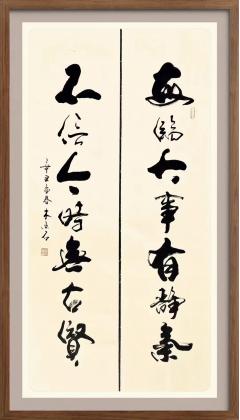 每临大事有静气
不信今时无古贤
辛丑季春